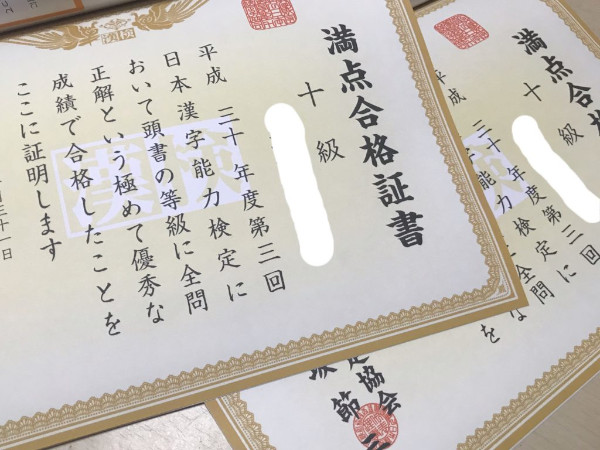 満点合格証書
十級
平成 三十年度第三回
日本漢字能力検定に
おいて頭書の等級に全問
正解という極めて優秀な
成績で合格したことを
ここに証明します
月三十一日
漢検
満点合格
十級
平成 三十年度第三回
字能力検定に
全問
な
を
定協会
節 三